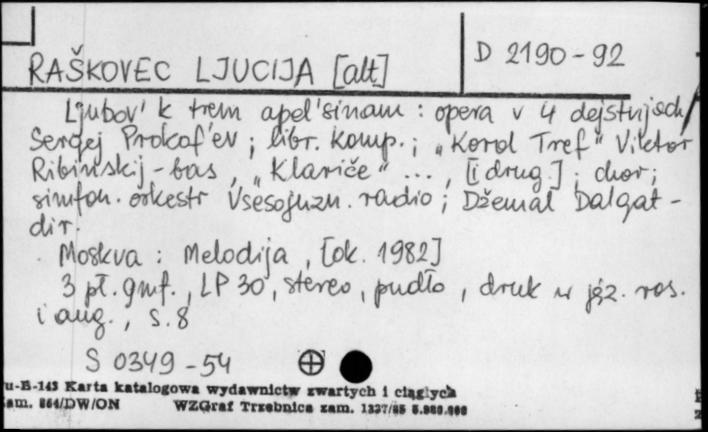 RAŠKOVEC LJUCIJA [alt]
D 2190-92
Ljubov' k trem apel'sinam : opera v 4 dejstvijach /
Sergej Prokof'ev ; libr. komp. ; "Korol Tref" Viktor
Ribinskij - bas, "Klariče" ... , [i drug.] ; chor ;
simfon. orkestr Vsesojuzn. radio ; Džemal Dalgat -
dir.
Moskva : Melodija, [ok. 1982]
3 pł. gmf., LP 30, stereo, pudło, druk w jęz. ros.
i ang., S. 8
S 0349-54
u-B-143 Karta katalogowa wydawnictw zwartych i ciągłych
zam. 864/DW/ON WZGraf Trzebnica zam. 1337/85 5.000.000